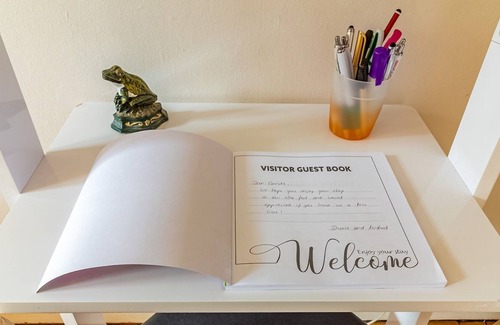 VISITOR GUEST BOOK
Dear Guests,
We hope you enjoy your stay
in our flat and would
appreciate if you leave us a few
lines!
and
Enjoy your stay
Welcome